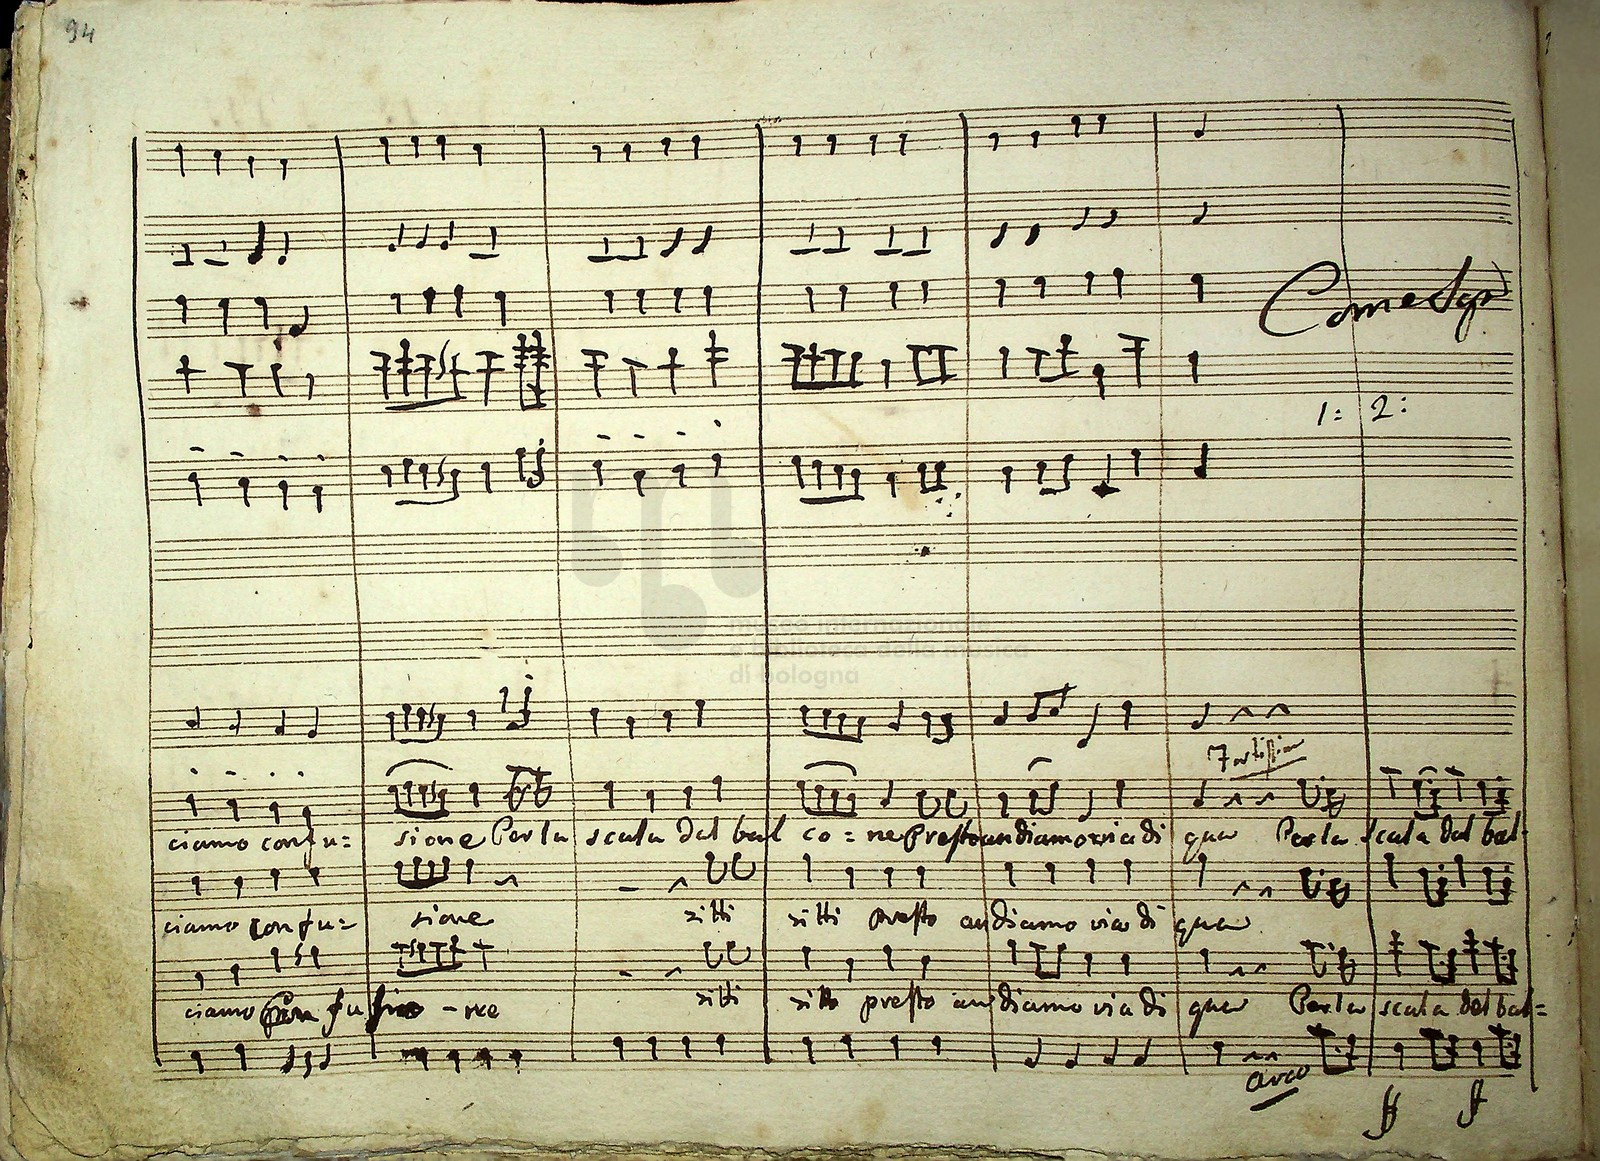 94
Come Sop
1: 2:
museo internazionale
e biblioteca della musica
di bologna
Fortissimo
ciamo confu= sione Per la scala dal bal co = ne Presto andiamo via di qua Per la scala dal bal-
ciamo confu= sione zitti zitti presto andiamo via di qua
ciamo Con fu sio -ne zitti zitti presto andiamo via di qua Per la scala del bal=
arco
ff f